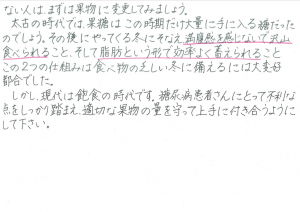 ない人は、まずは果物に変更してみましょう。
太古の時代では、果糖はこの時期だけ大量に手に入る糖だった
のでしょう。その後にやってくる冬にそなえ満腹感を感じないで沢山
食べられること、そして脂肪という形で効率よく蓄えられること
この2つの仕組みは食べ物の乏しい冬に備えるには大変好
都合でした。
しかし、現代は飽食の時代です。糖尿病患者さんにとって不利な
点をしっかり踏まえ、適切な果物の量を守って上手に付き合うように
して下さい。